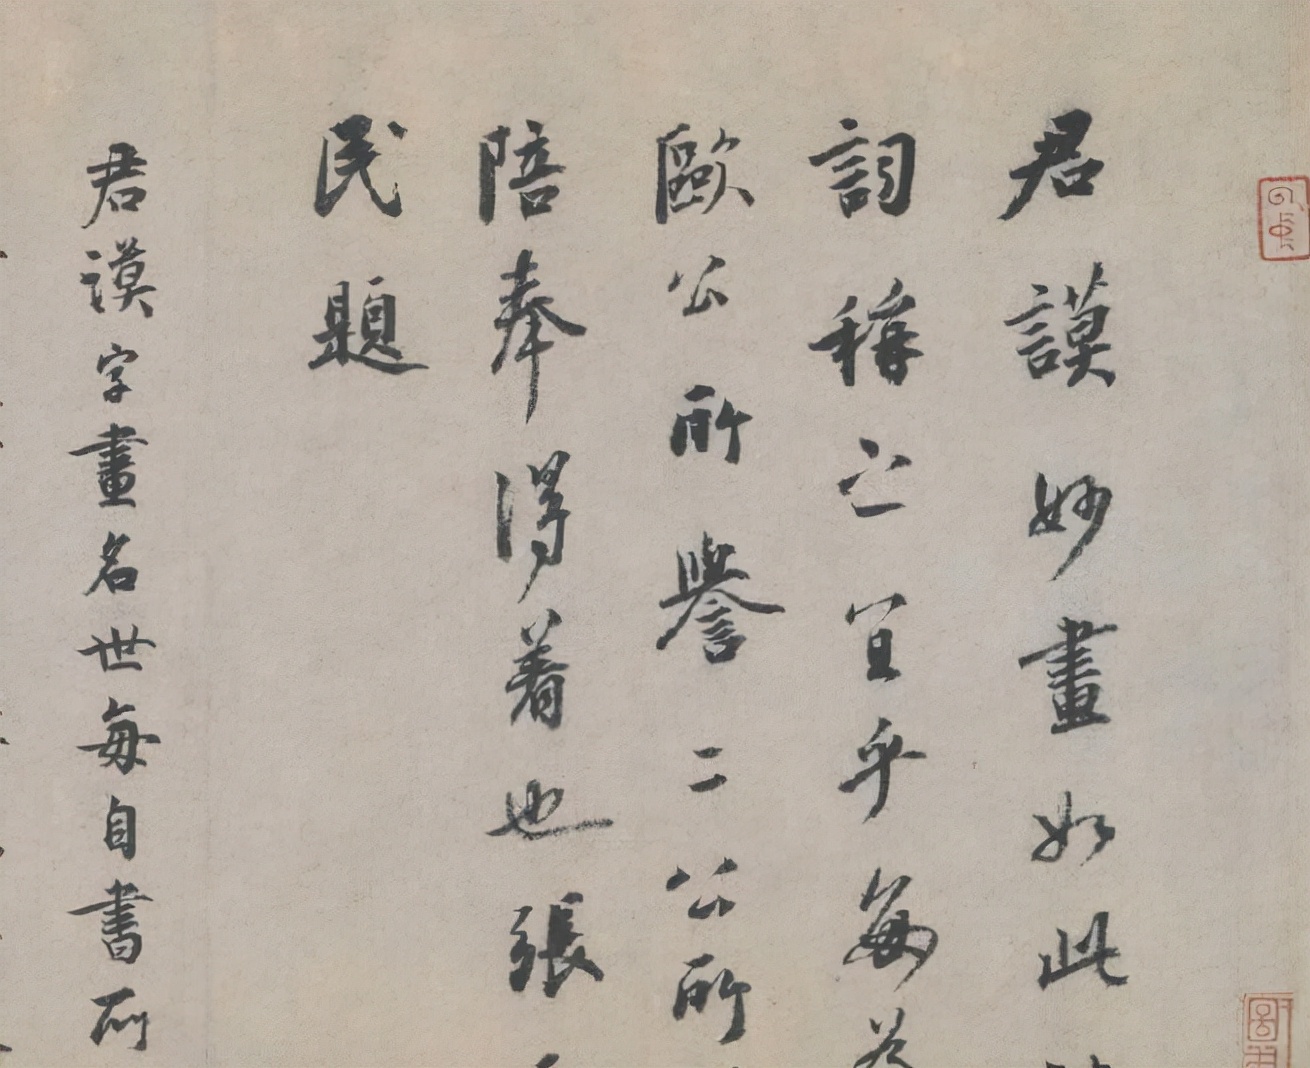 君謨妙畫如此
詞稱之宜乎每為
歐公所譽二公所
陪奉得着也張
民題
君謨字畫名世每自書所